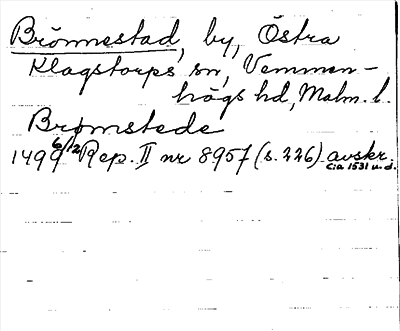 Brönnestad, by, Östra
Klagstorps sn, Vemmen-
högs hd, Malm. l.
Brømstede
1499 6/12 Rep. II nr 8957 (s. 226) avskr.
cia 1531 u. d.